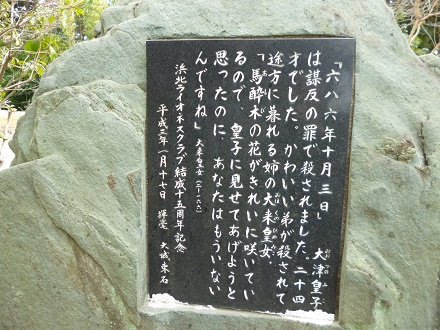 「六八六年十月三日」 大津皇子
は謀反の罪で殺されました。二十四
才でした。かわいい弟が殺されて
途方に暮れる姉の大来皇女、
「馬酔木の花がきれいに咲いてい
るので、皇子に見せてあげようと
思ったのに、あなたはもういない
んですね」 大来皇女(二ー一六六)
浜北ライオネスクラブ結成十五周年記念
平成三年一月十七日 揮毫 大城東石